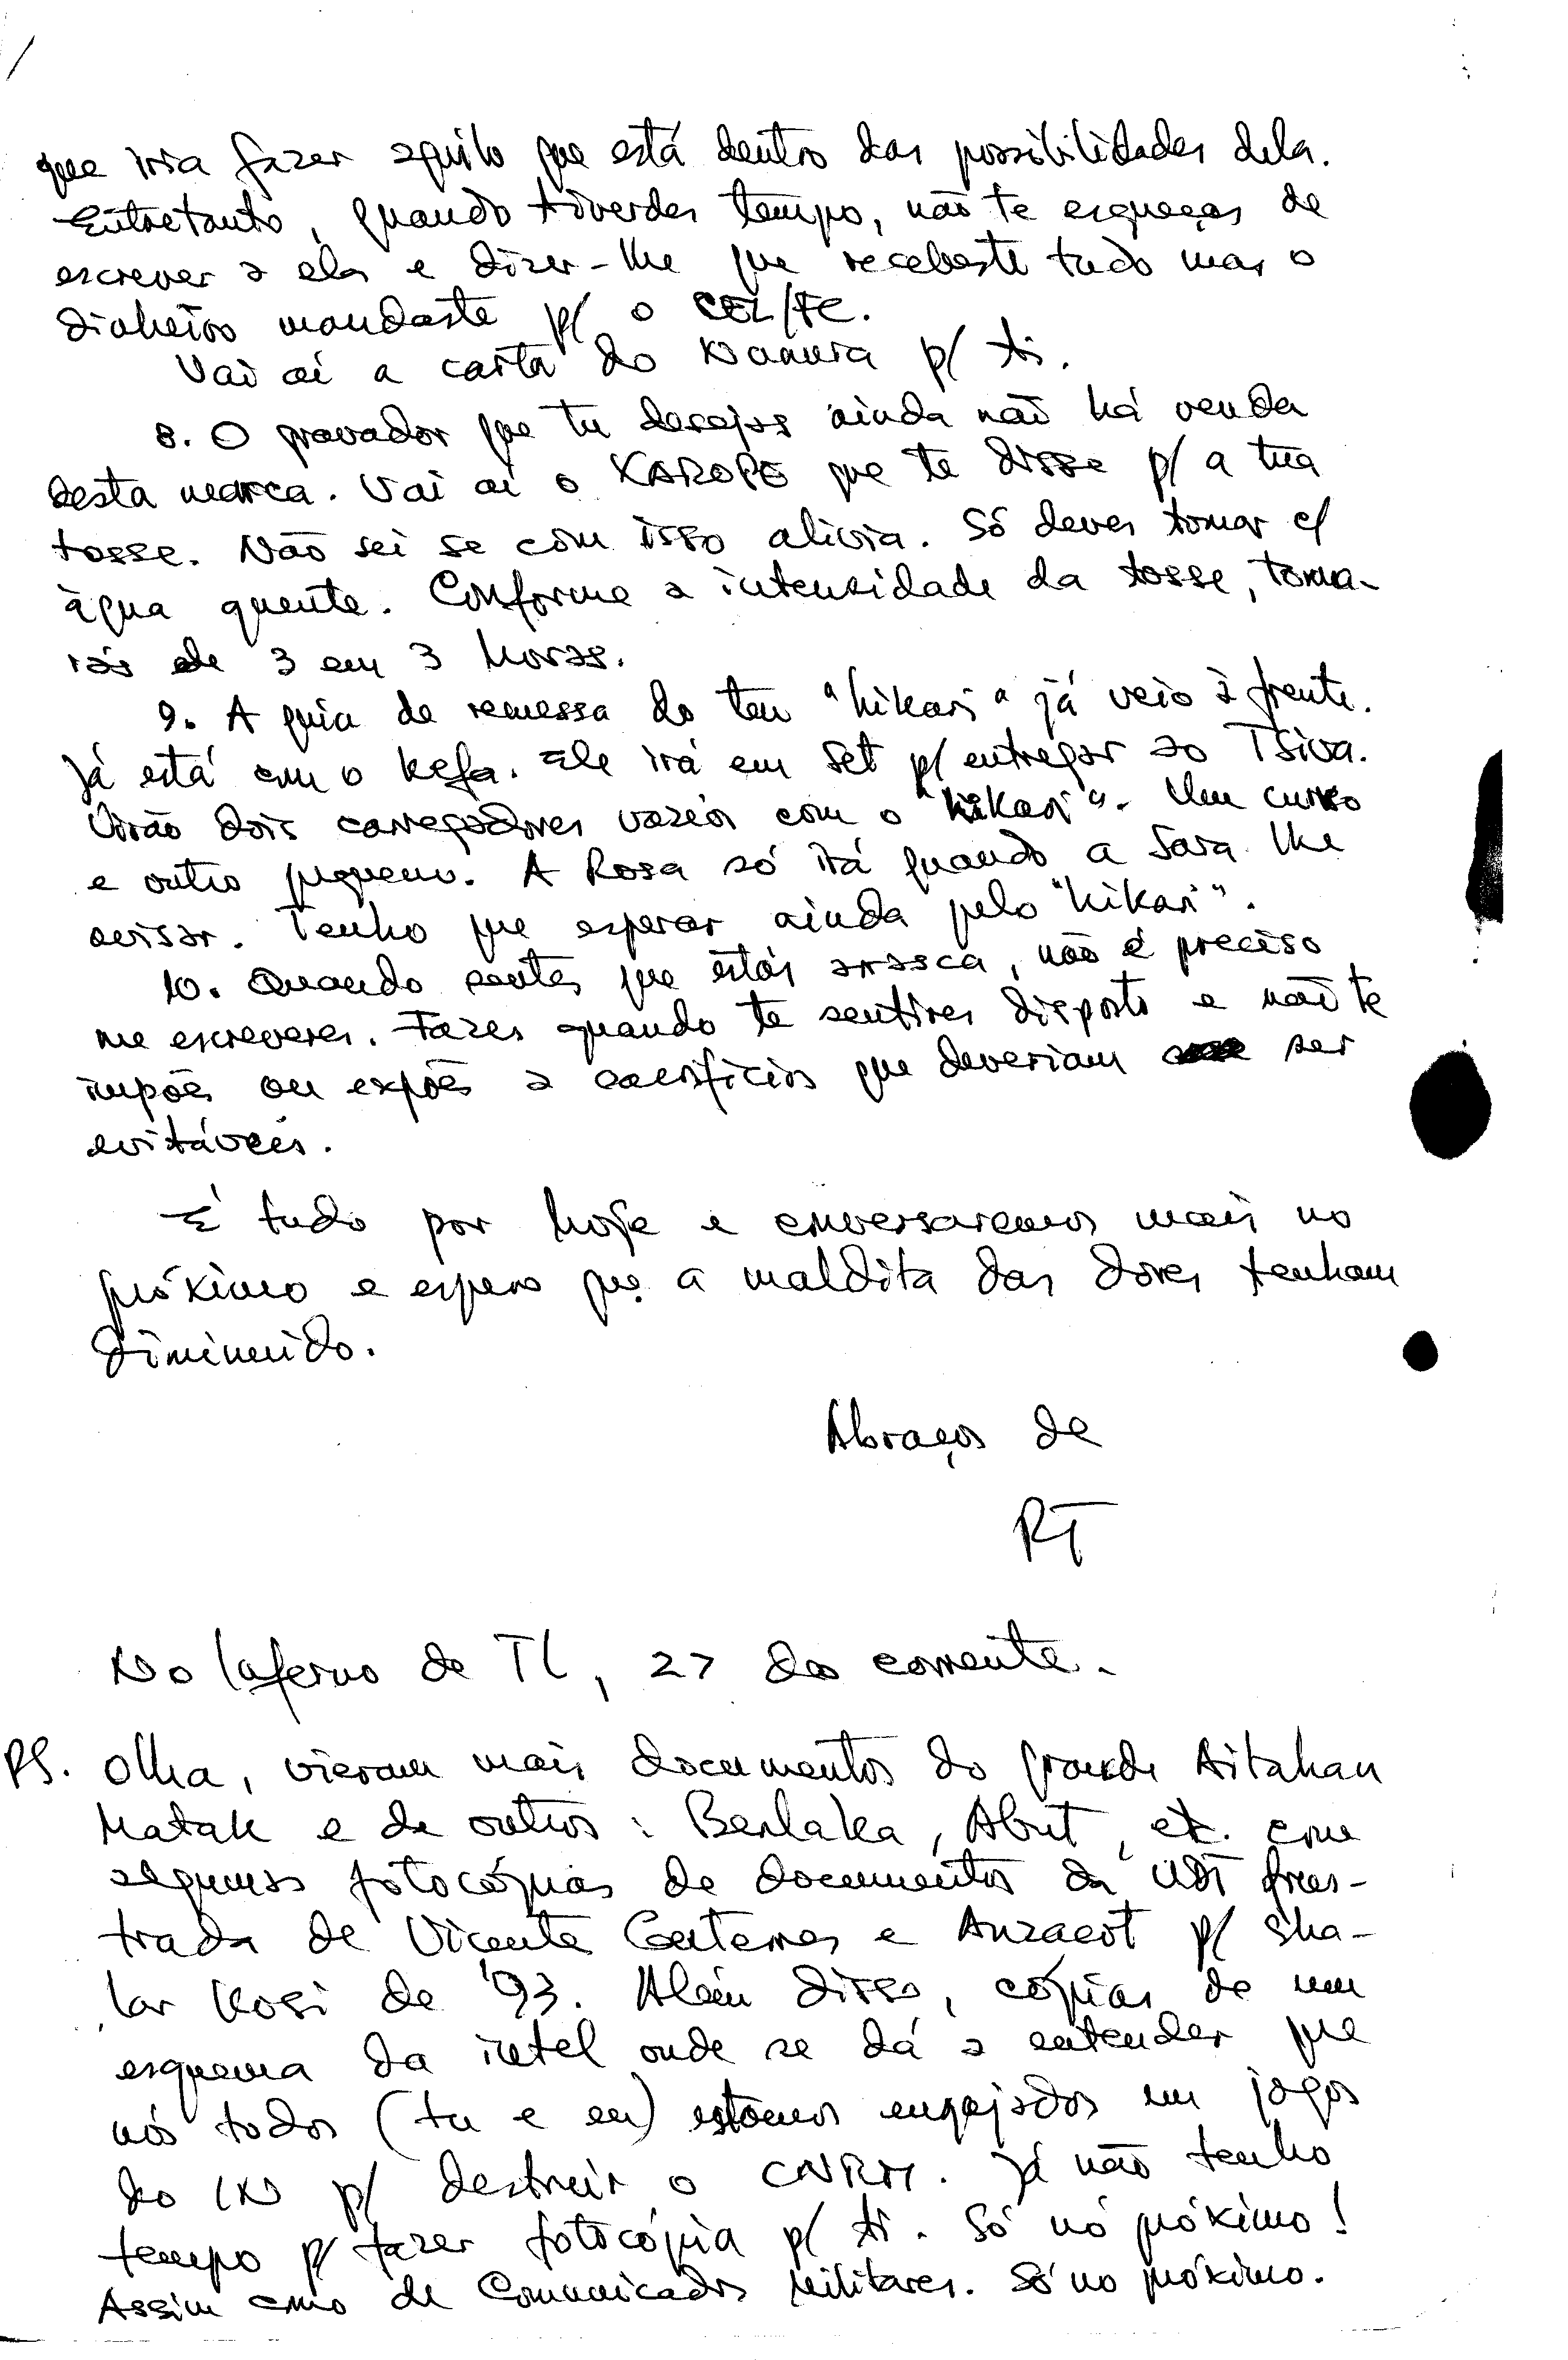 que iria fazer aquilo que está dentro das possibilidades dela.
Entretanto, quando tiverdes tempo, não te esqueças de
escrever a ela e dizer-lhe que recebeste tudo mas o
dinheiro mandaste p/ o CEL/FC.
Vai aí a carta do p/ ti.
8. O gravador que tu desejas ainda não há venda
desta marca. Vai aí o XAROPE que te disse p/ a tua
tosse. Não sei se com isso alivia. Só deves tomar c/
àgua quente. Conforme a intensidade da tosse, toma-
rás de 3 em 3 horas.
9. A guia de remessa do teu "hikari" já veio à frente.
Já está com o Kefa. Ele irá em Set p/ entregar ao Tsiva.
Virão dois carregadores vazios com o "hikari". Um curso
e outro pequeno. A Rosa só irá quando a Sara lhe
avisar. Tenho que esperar ainda pelo "hikari".
10. Quando sentes que estás àrrasca, não é preciso
me escreveres. Fazes quando te sentires disposto e não te
impões ou expões a sacrifícios que deveriam ser
evitáveis.
É tudo por hoje e conversaremos mais no
próximo e espero que a maldita das dores tenham
diminuido.
Abraços de
RT
No Inferno de TL, 27 do corrente.
PS. Olha, vieram mais documentos do grande Aitahan
Matak e de outros: Berlaka, Abut, etc. com
algumas fotocópias de documentos da UDT frus-
trada de Vicente Guterres e Anzacot p/ Sha-
lar Kosi de '93. Além disso, cópias de um
esquema da intel onde se dá a entender que
nós todos (tu e eu) estamos engajados em jogos
do IN p/ destruir o CNRM. Já não tenho
tempo p/ fazer fotocópia p/ ti. Só no próximo!
Assim como de Comunicados Militares. Só no próximo.